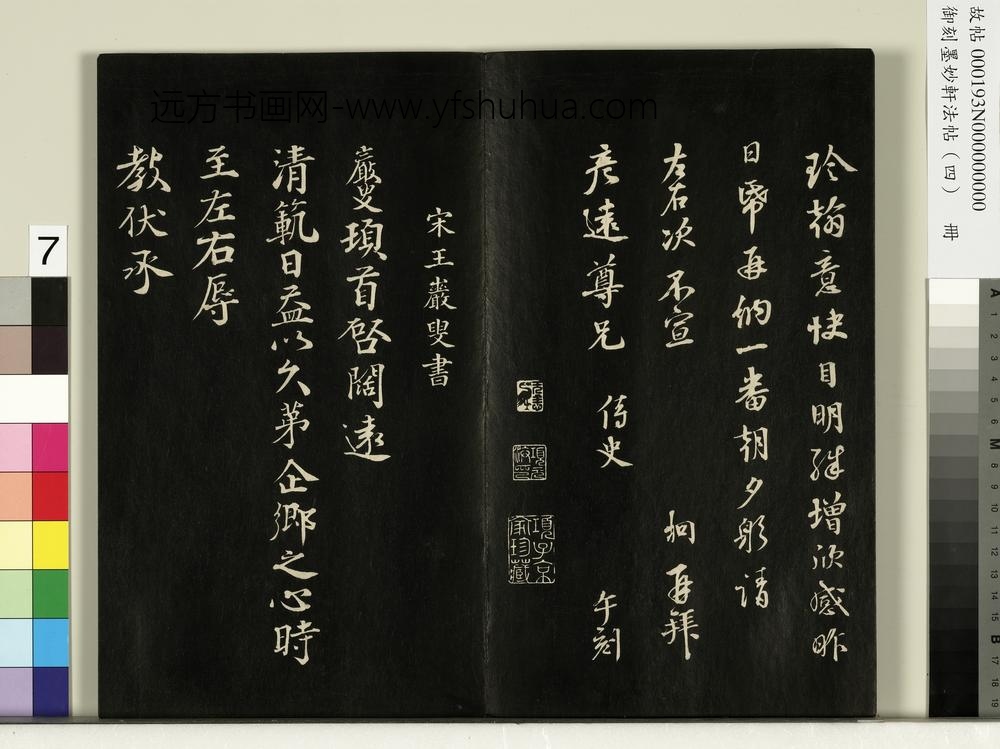 故帖 000193N000000000
御刻墨妙軒法帖（四） 冊
远方书画网-www.yfshuhua.com
珍翰意快目明殊增欣感昨
日 再納一番朝夕 請
左右次不宣 再拜
彦遠尊兄 侍史 午刻
項子京家珍藏
宋王巖叟書
巖叟頊首啓闊遠
清範日益以久第企鄉之心時
至左右辱
教伏承
7
A 1 2 3 4 5 6 M 8 9 10 11 12 13 14 15 B 17 18 19